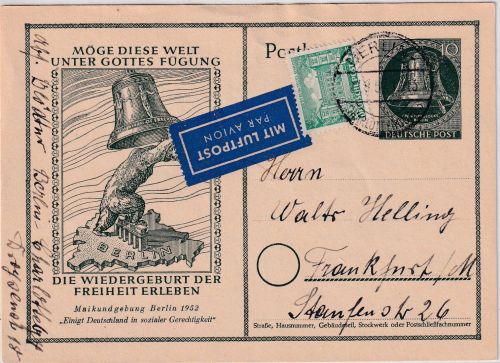 MÖGE DIESE WELT
UNTER GOTTES FÜGUNG
BERLIN
DIE WIEDERGEBURT DER
FREIHEIT ERLEBEN
Maikundgebung Berlin 1952
„Einigt Deutschland in sozialer Gerechtigkeit"
Postk
MIT LUFTPOST
PAR AVION
BERLIN
10
DEUTSCHE POST
Herrn
Walter Helling
Frankfurt/M
Staufenstr 26
Straße, Hausnummer, Gebäudeteil, Stockwerk oder Postschließfachnummer
Berlin-Charlottenbg